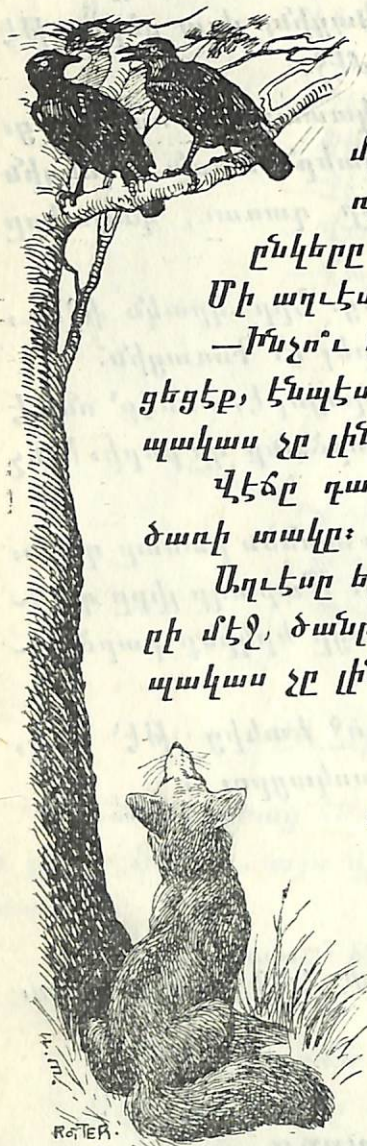 մ
ընկերը
Մի աղւէս
—Ինչո՞ւ
ցեցէք, էնպէս
պակաս չը լին
Վէճը դա
ծառի տակը։
Աղւէսը ե
րի մէջ,
պակաս չը լի
ROTER.